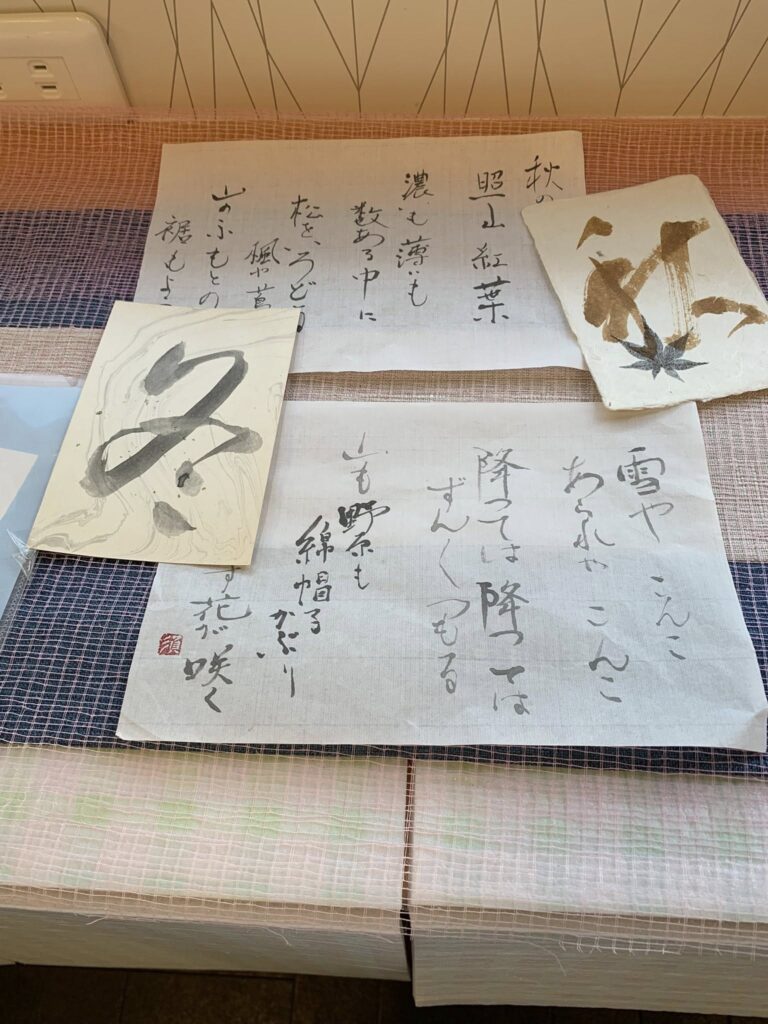 秋の
照る山 紅葉
濃いも 薄いも
数ある中に
松をいろどる
楓や蔦
山のふもとの
裾もよ
紅
冬
雪や こんこ
あられや こんこ
降っては 降っては
ずん〱つもる
山も野原も
綿帽子かぶり
ず花が咲く
須